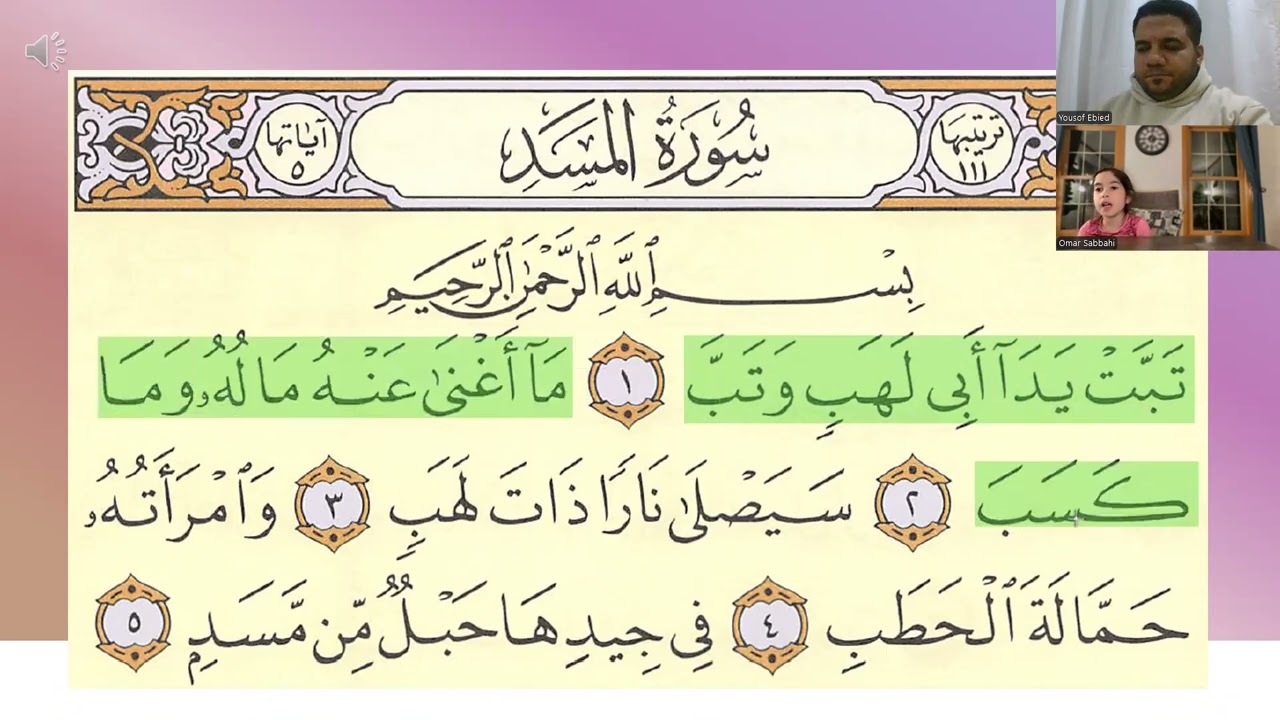 سُورَةُ المَسَدِ
ترتيبها ١١١
آياتها ٥
بِسْمِ ٱللَّهِ ٱلرَّحْمَٰنِ ٱلرَّحِيمِ
تَبَّتْ يَدَآ أَبِى لَهَبٍ وَتَبَّ ١ مَآ أَغْنَىٰ عَنْهُ مَالُهُۥ وَمَا
كَسَبَ ٢ سَيَصْلَىٰ نَارًا ذَاتَ لَهَبٍ ٣ وَٱمْرَأَتُهُۥ
حَمَّالَةَ ٱلْحَطَبِ ٤ فِى جِيدِهَا حَبْلٌ مِّن مَّسَدٍۭ ٥
Yousof Ebied
Omar Sabbahi